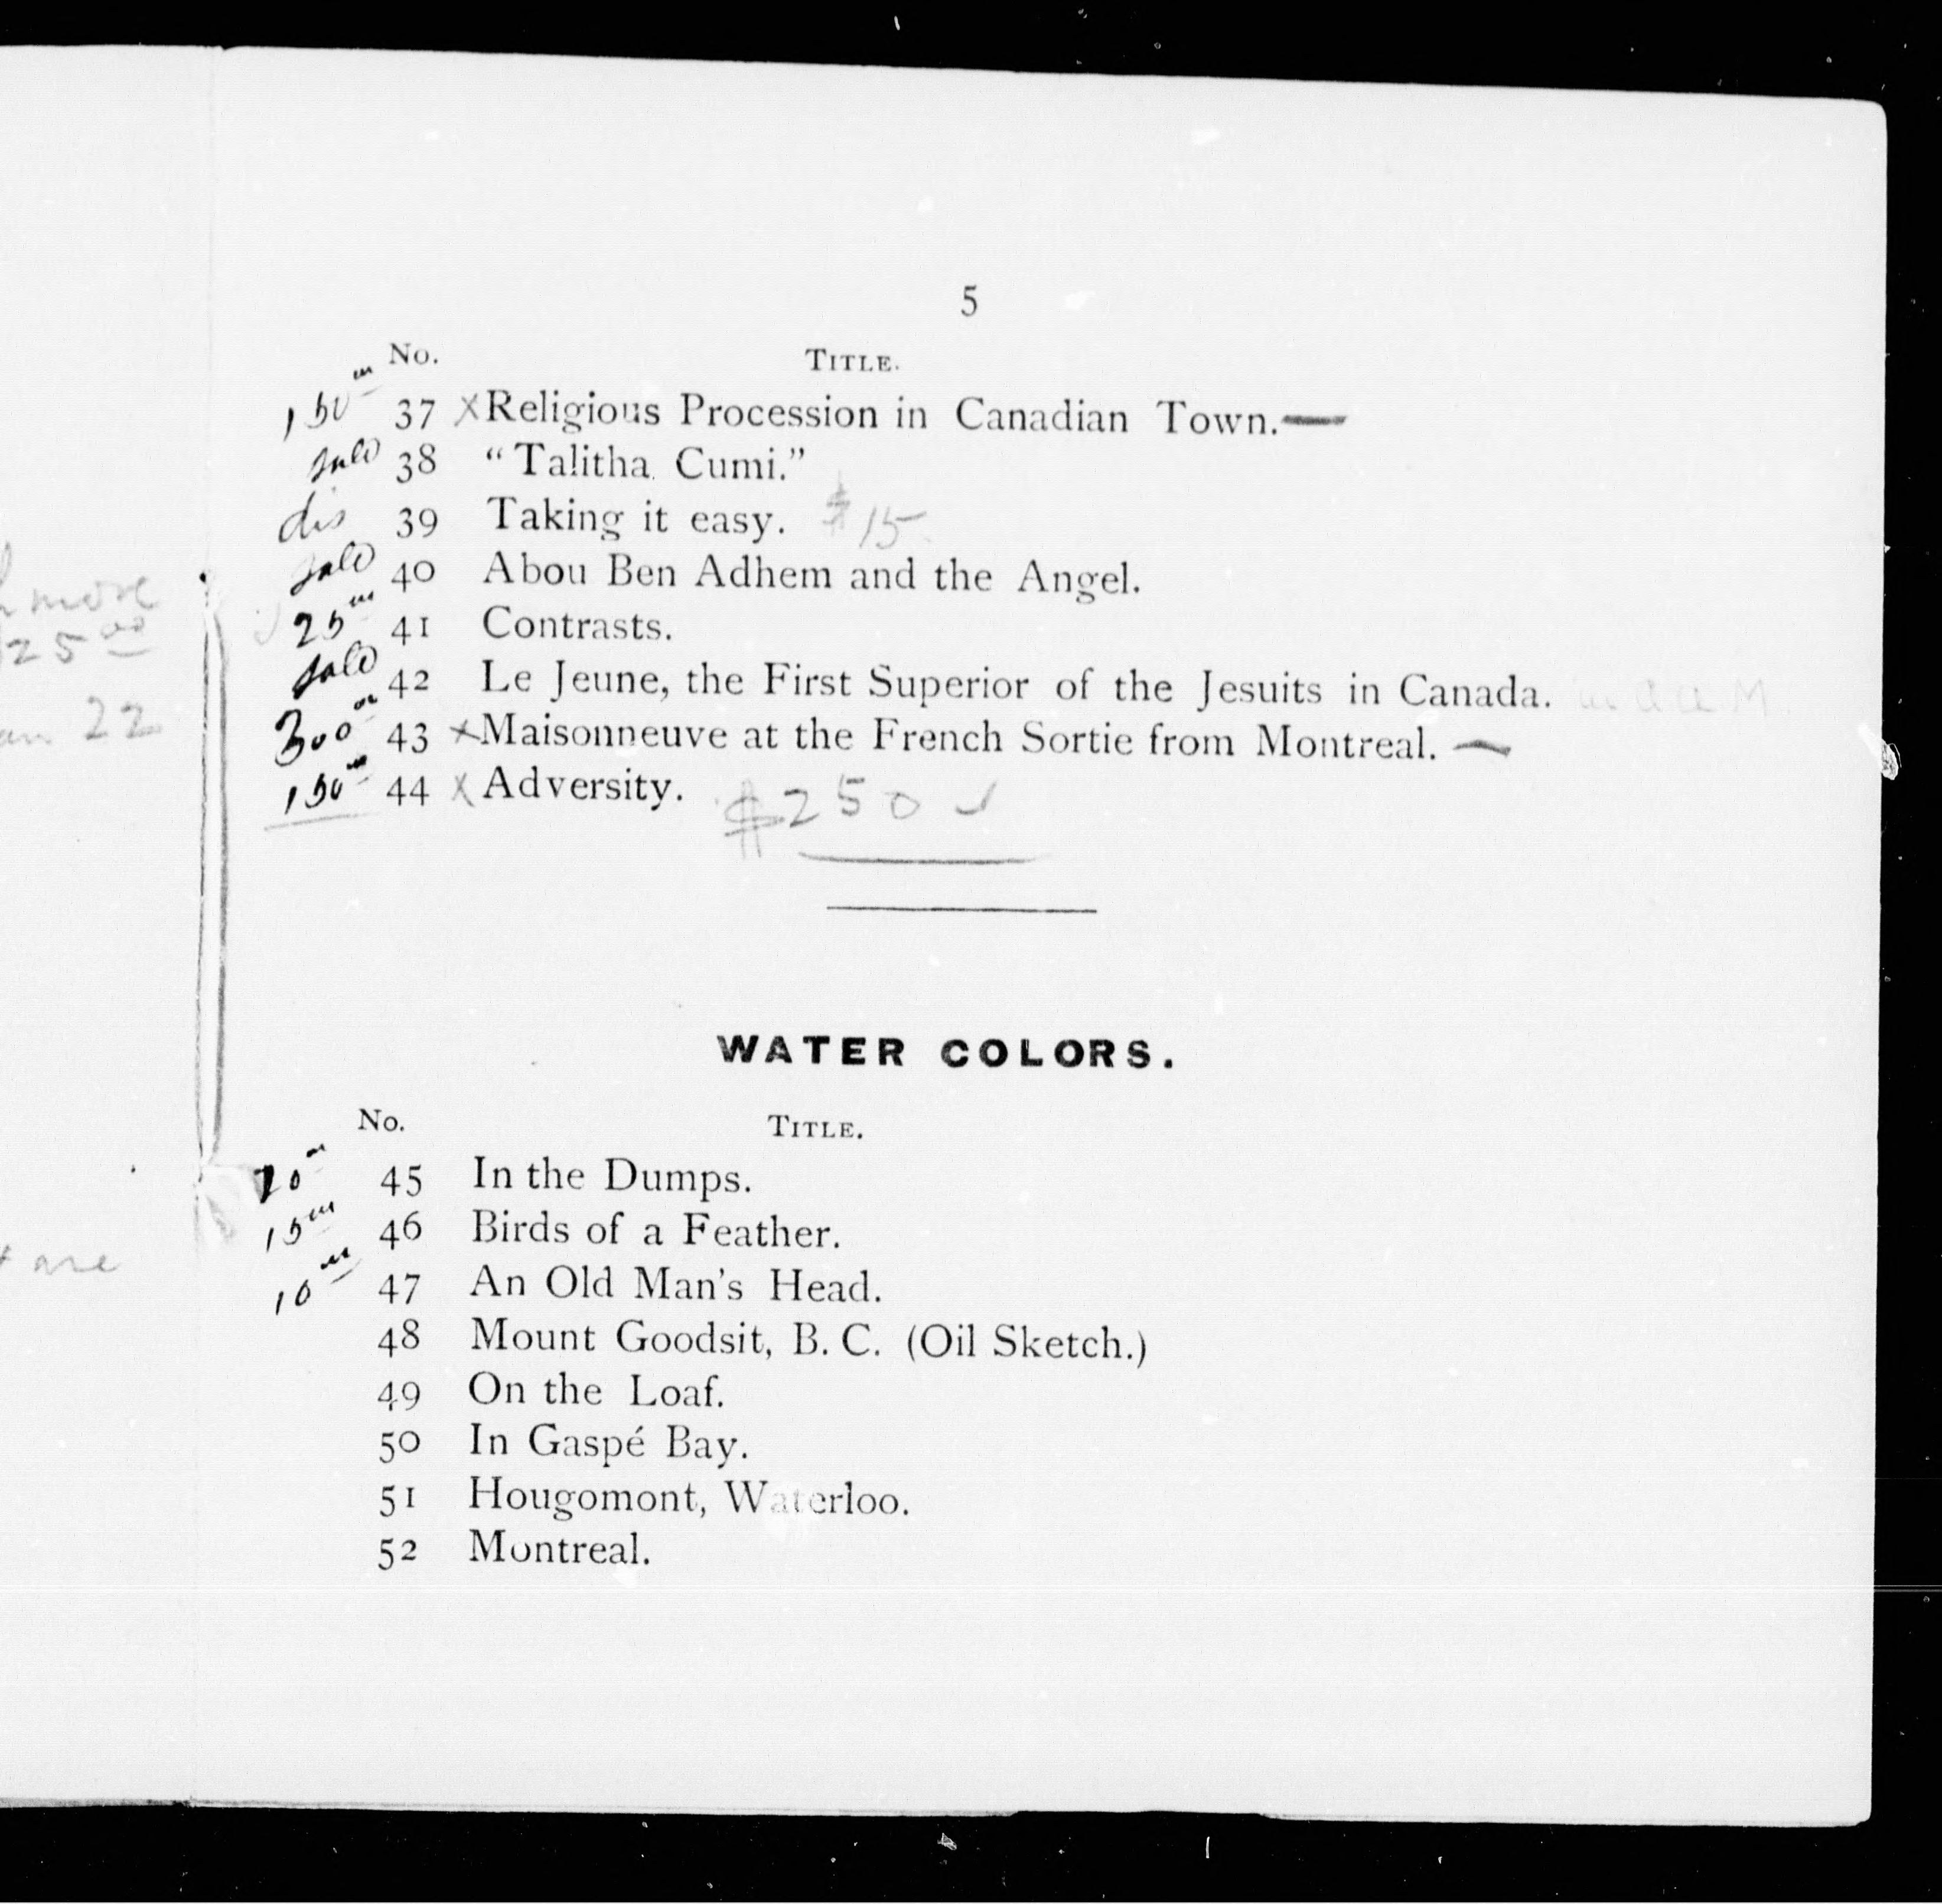 5
No. TITLE.
150 00 37 x Religious Procession in Canadian Town. —
sold 38 “Talitha Cumi.”
dis 39 Taking it easy. $15
sold 40 Abou Ben Adhem and the Angel.
25 00 41 Contrasts.
sold 42 Le Jeune, the First Superior of the Jesuits in Canada.
300 00 43 x Maisonneuve at the French Sortie from Montreal. —
150 00 44 x Adversity. $250 ✓
WATER COLORS.
No. TITLE.
20 00 45 In the Dumps.
15 00 46 Birds of a Feather.
10 00 47 An Old Man's Head.
48 Mount Goodsit, B. C. (Oil Sketch.)
49 On the Loaf.
50 In Gaspé Bay.
51 Hougomont, Waterloo.
52 Montreal.
more
25 00
22
are